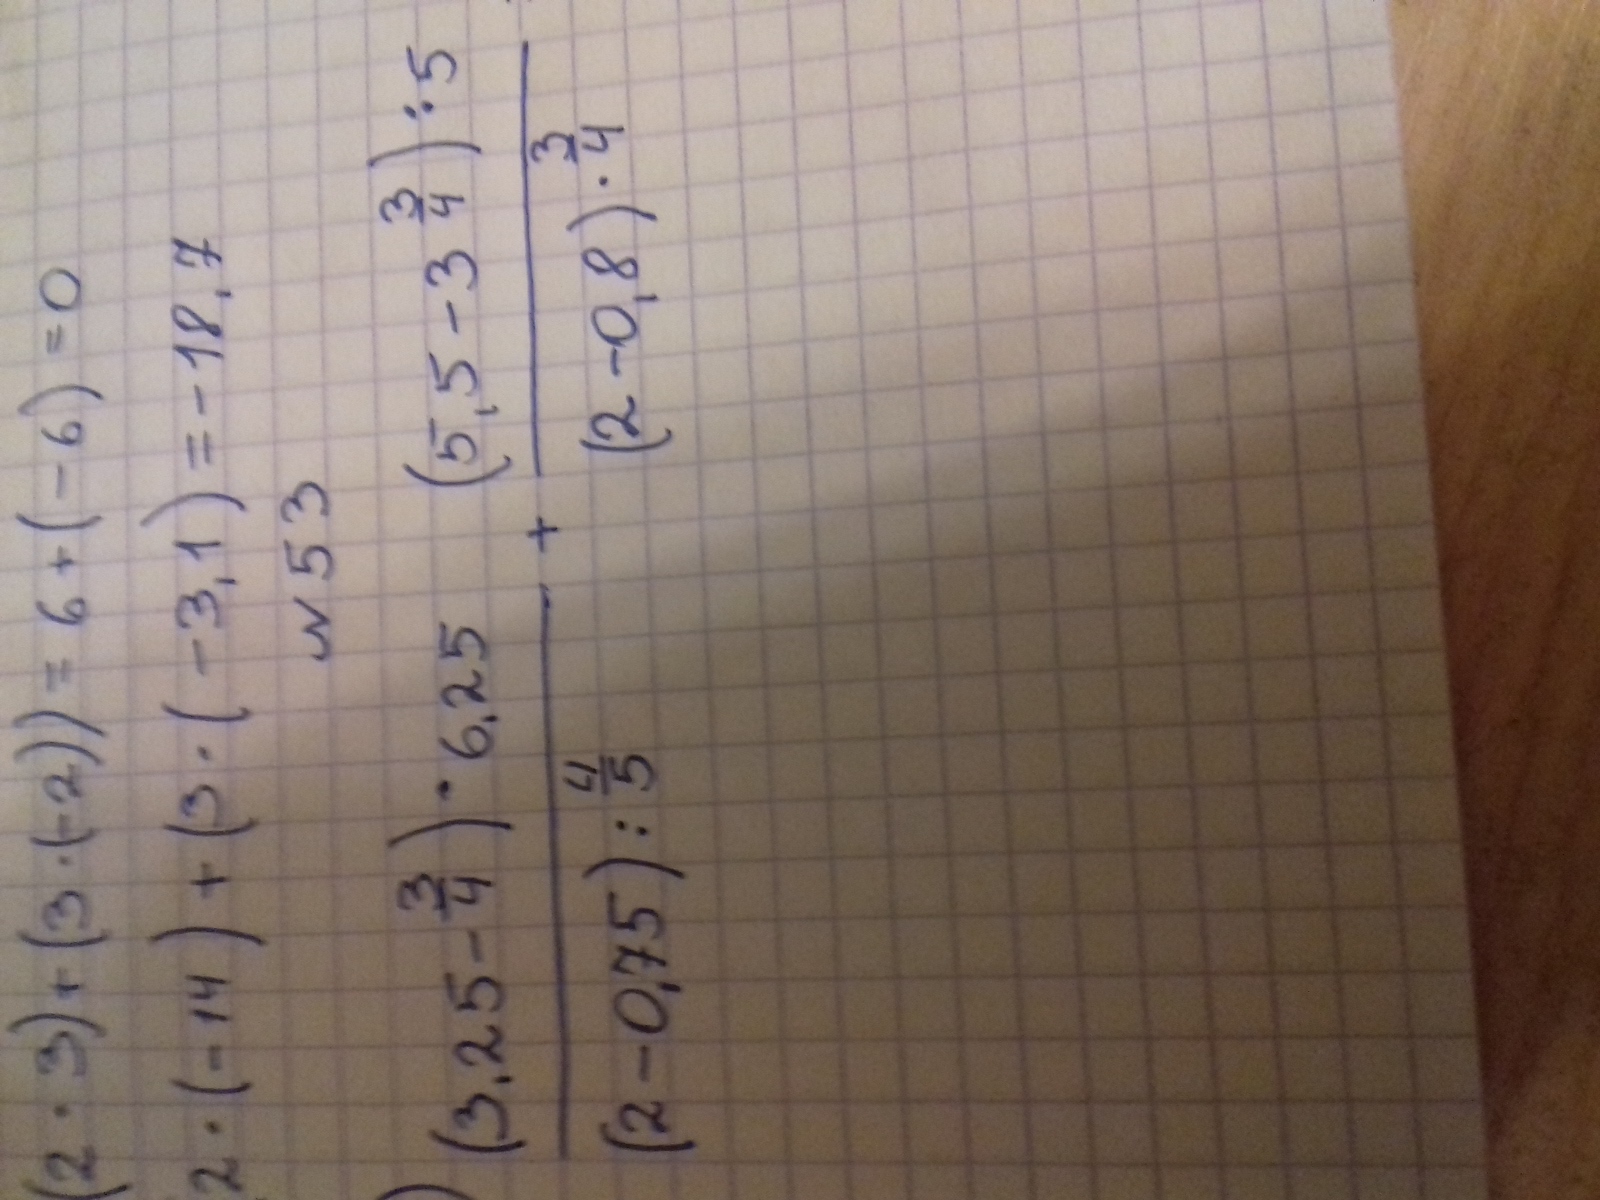 (2 · 3) + (3 · (-2)) = 6 + (-6) = 0
2 · (-14) + (3 · (-3,1) = -18,7
N 53
) (3,25 - 3/4) · 6,25 / (2 - 0,75) : 4/5 + (5,5 - 3 3/4) : 5 / (2 - 0,8) · 3/4